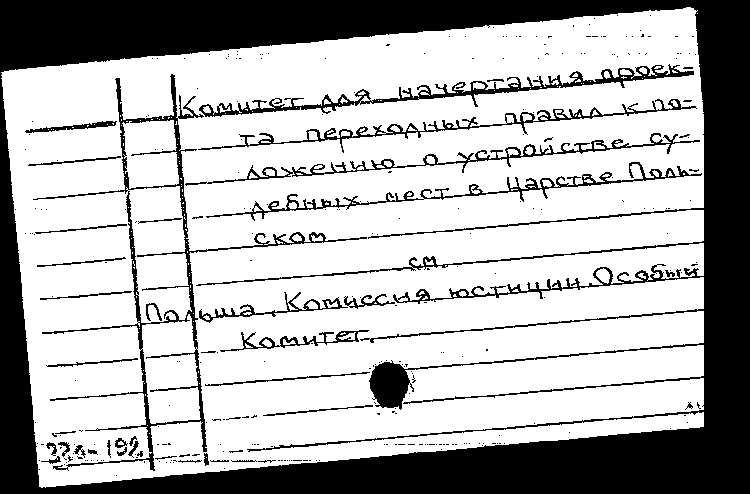 Комитет для начертания проек-
та переходных правил к по-
ложению о устройстве су-
дебных мест в Царстве Поль-
ском
см.
Польша. Комиссия юстиции. Особый
Комитет.